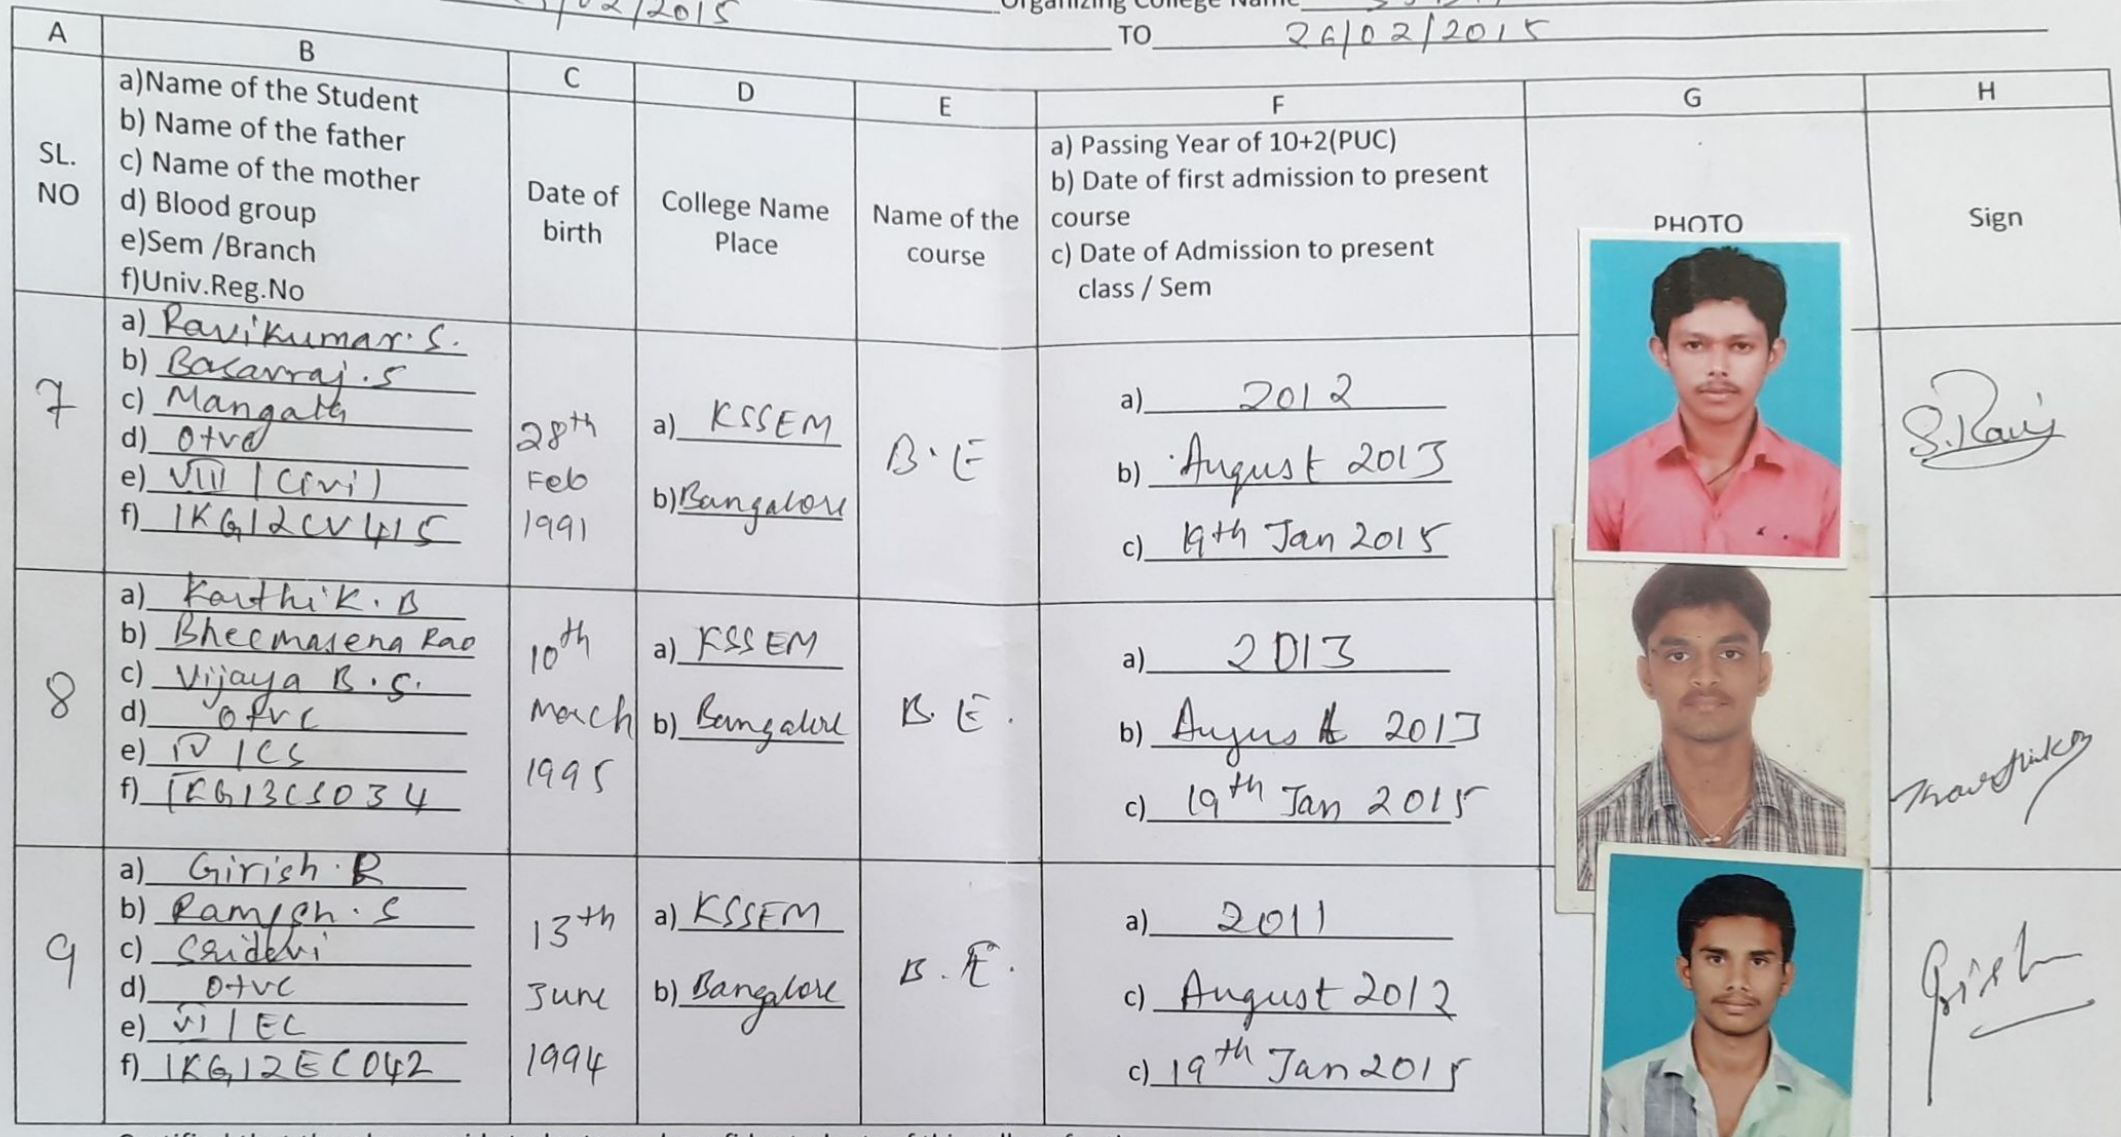 /02/2015
Organizing College Name
TO 26/02/2015
A B C D E F G H
SL.
NO
a)Name of the Student
b) Name of the father
c) Name of the mother
d) Blood group
e)Sem /Branch
f)Univ.Reg.No
Date of
birth
College Name
Place
Name of the
course
a) Passing Year of 10+2(PUC)
b) Date of first admission to present
course
c) Date of Admission to present
class / Sem
PHOTO
Sign
7
a) Ravikumar. S.
b) Basavraj . S
c)
d) O+ve
e) VIII / Civil
f) 1KG12CV415
28th
Feb
1991
a) KSSEM
b) Bangalore
B.E
a) 2012
b) August 2013
c) 19th Jan 2015
S.Ravi
8
a) Karthik . B
b) Bheemasena Rao
c) Vijaya B . S.
d) O+ve
e) IV / CS
f) 1KG13CS034
10th
March
1995
a) KSSEM
b) Bangalore
B.E.
a) 2013
b) August 2013
c) 19th Jan 2015
9
a) Girish . R
b) Ramesh . S
c) Sridevi
d) O+ve
e) VI / EC
f) 1KG12EC042
13th
June
1994
a) KSSEM
b) Bangalore
B.E.
a) 2011
c) August 2012
c) 19th Jan 2015
Girish